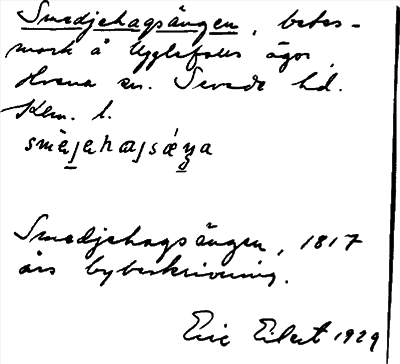 Smedjehagsängen, betes-
mark å Ugglefalls ägor,
Hvena sn. Sevede hd.
Klm. l.
smèjahajsǽŋa
Smedjehagsängen, 1817
års bybeskrivning.
Eric Elert 1929